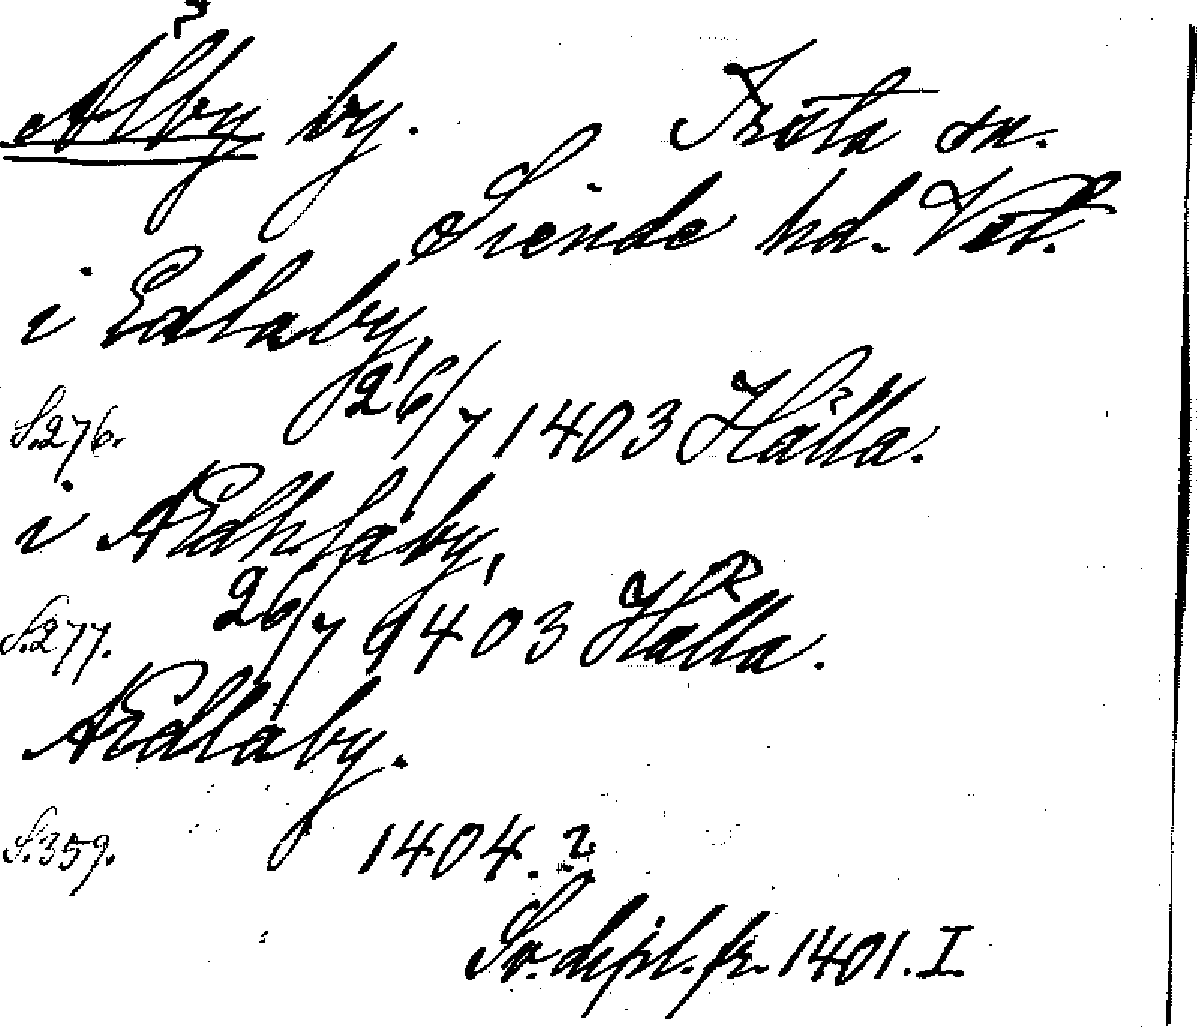 Ålby by. Irsta sn.
Siende hd. Vstm.
i Edlaby,
S. 276. 26/7 1403 Hålla.
i Ædhlaby,
S. 277. 26/7 1403 Hålla.
Ædlaby.
S. 359. 1404. ?
Sv. dipl. fr. 1401. I